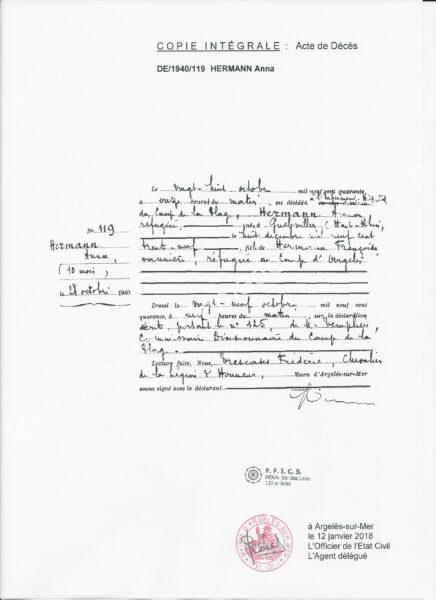 COPIE INTÉGRALE : Acte de Décés
DE/1940/119 HERMANN Anna
N° 119
Hermann
Anna,
(10 mois)
le 28 octobre 1940
Le vingt-huit octobre mil neuf cent quarante,
à onze heures du matin, est décédée à l'infirmerie
du Camp de la Plage, Hermann Anna
réfugiée, née à Guebwiller (Haut-Rhin)
le huit décembre mil neuf cent
trente-neuf, fille de Hermann Françoise
réfugiée au camp d'Argelès
Dressé le vingt-neuf octobre mil neuf cent
quarante, à neuf heures du matin, sur la déclaration
écrite, portant le n° 125, de M.
Commissaire Divisionnaire du Camp de la
Plage.
Lecture faite, Nous, Trescases Frédéric, Chevalier
de la Légion d'Honneur, Maire d'Argelès-sur-Mer
avons signé avec le déclarant.
F.F.I.C.S.
MDVA- blc des Lices
13200 Arles
à Argelès-sur-Mer
le 12 janvier 2018
L'Officier de l'Etat Civil
L'Agent délégué